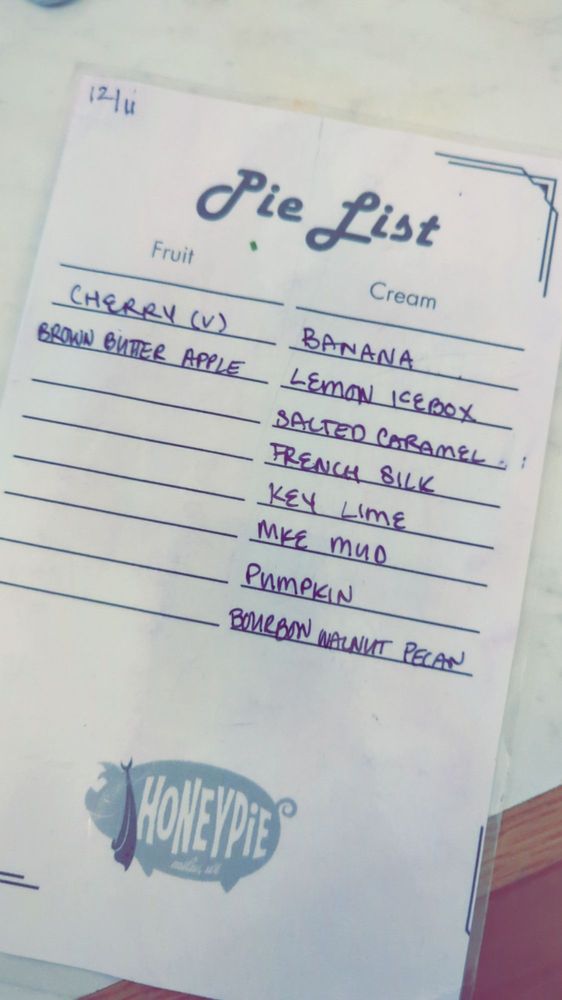 12/11
Pie List
Fruit
CHERRY (V)
BROWN BUTTER APPLE
Cream
BANANA
LEMON ICEBOX
SALTED CARAMEL
FRENCH SILK
KEY LIME
MKE MUD
PUMPKIN
BOURBON WALNUT PECAN
HONEYPiE